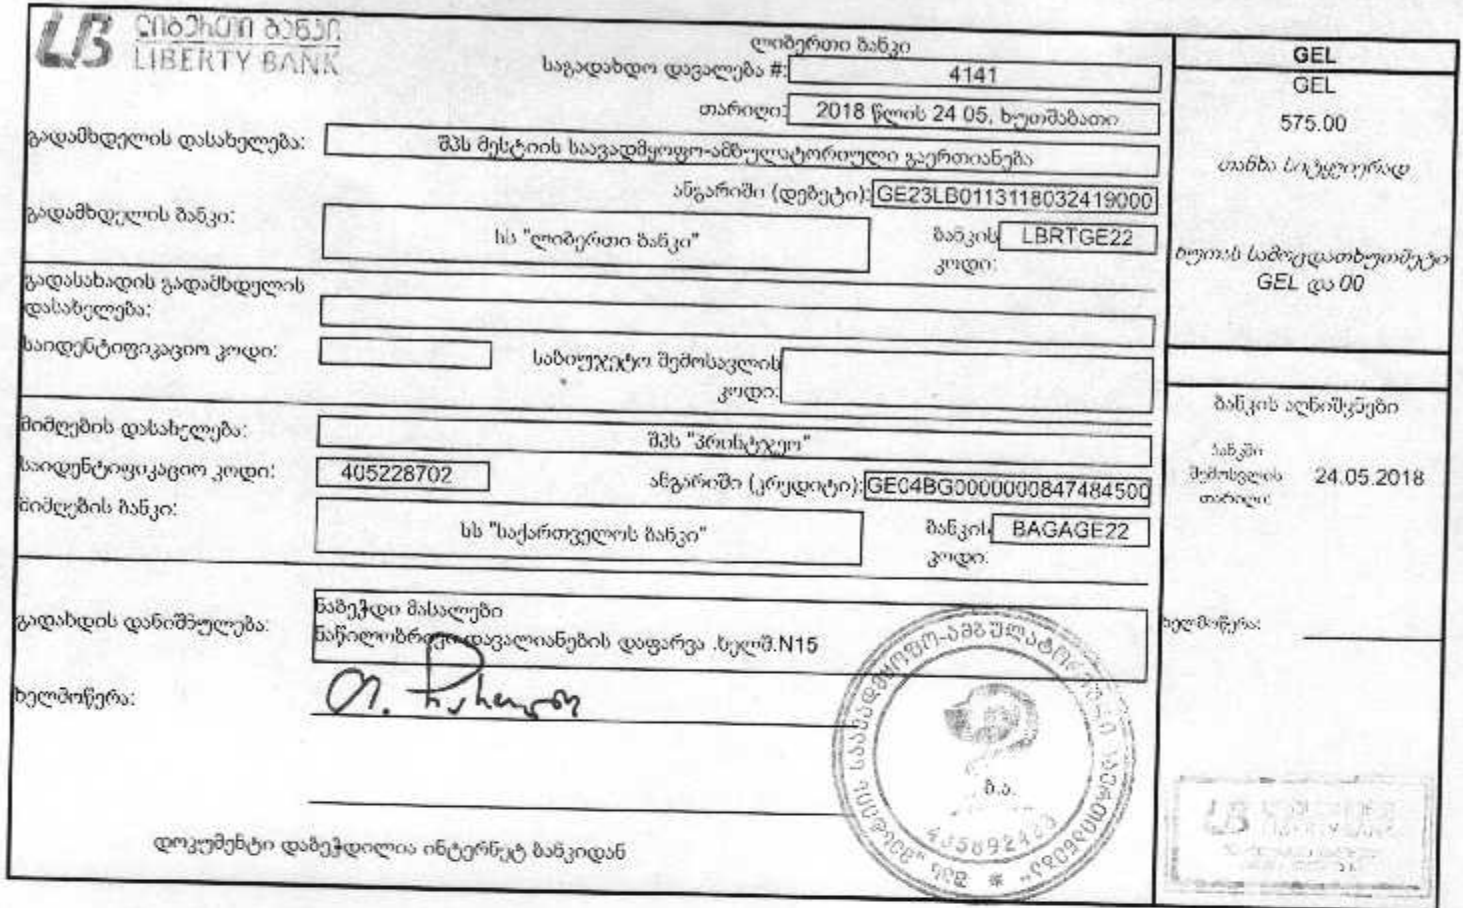 ლიბერთი ბანკი
LIBERTY BANK
ლიბერთი ბანკი
საგადახდო დავალება #: 4141
თარიღი: 2018 წლის 24 05, ხუთშაბათი
გადამხდელის დასახელება: შპს მესტიის საავადმყოფო-ამბულატორიული გაერთიანება
ანგარიში (დებეტი): GE23LB0113118032419000
გადამხდელის ბანკი: სს "ლიბერთი ბანკი" ბანკის კოდი: LBRTGE22
გადასახადის გადამხდელის
დასახელება:
საიდენტიფიკაციო კოდი: საბიუჯეტო შემოსავლის
კოდი:
მიმღების დასახელება: შპს "პრისტჯეო"
საიდენტიფიკაციო კოდი: 405228702 ანგარიში (კრედიტი): GE04BG0000000847484500
მიმღების ბანკი: სს "საქართველოს ბანკი" ბანკის კოდი: BAGAGE22
გადახდის დანიშნულება: ნაბეჭდი მასალები
ნაწილობრივი დავალიანების დაფარვა .ხელშ.N15
ხელმოწერა:
დოკუმენტი დაბეჭდილია ინტერნეტ ბანკიდან
GEL
GEL
575.00
თანხა სიტყვიერად
ხუთას სამოცდათხუთმეტი
GEL და 00
ბანკის აღნიშვნები
ბანკში
შემოსვლის
თარიღი: 24.05.2018
ხელმოწერა:
შპს "მესტიის საავადმყოფო-ამბულატორიული გაერთიანება"
ბ.ა.
LB